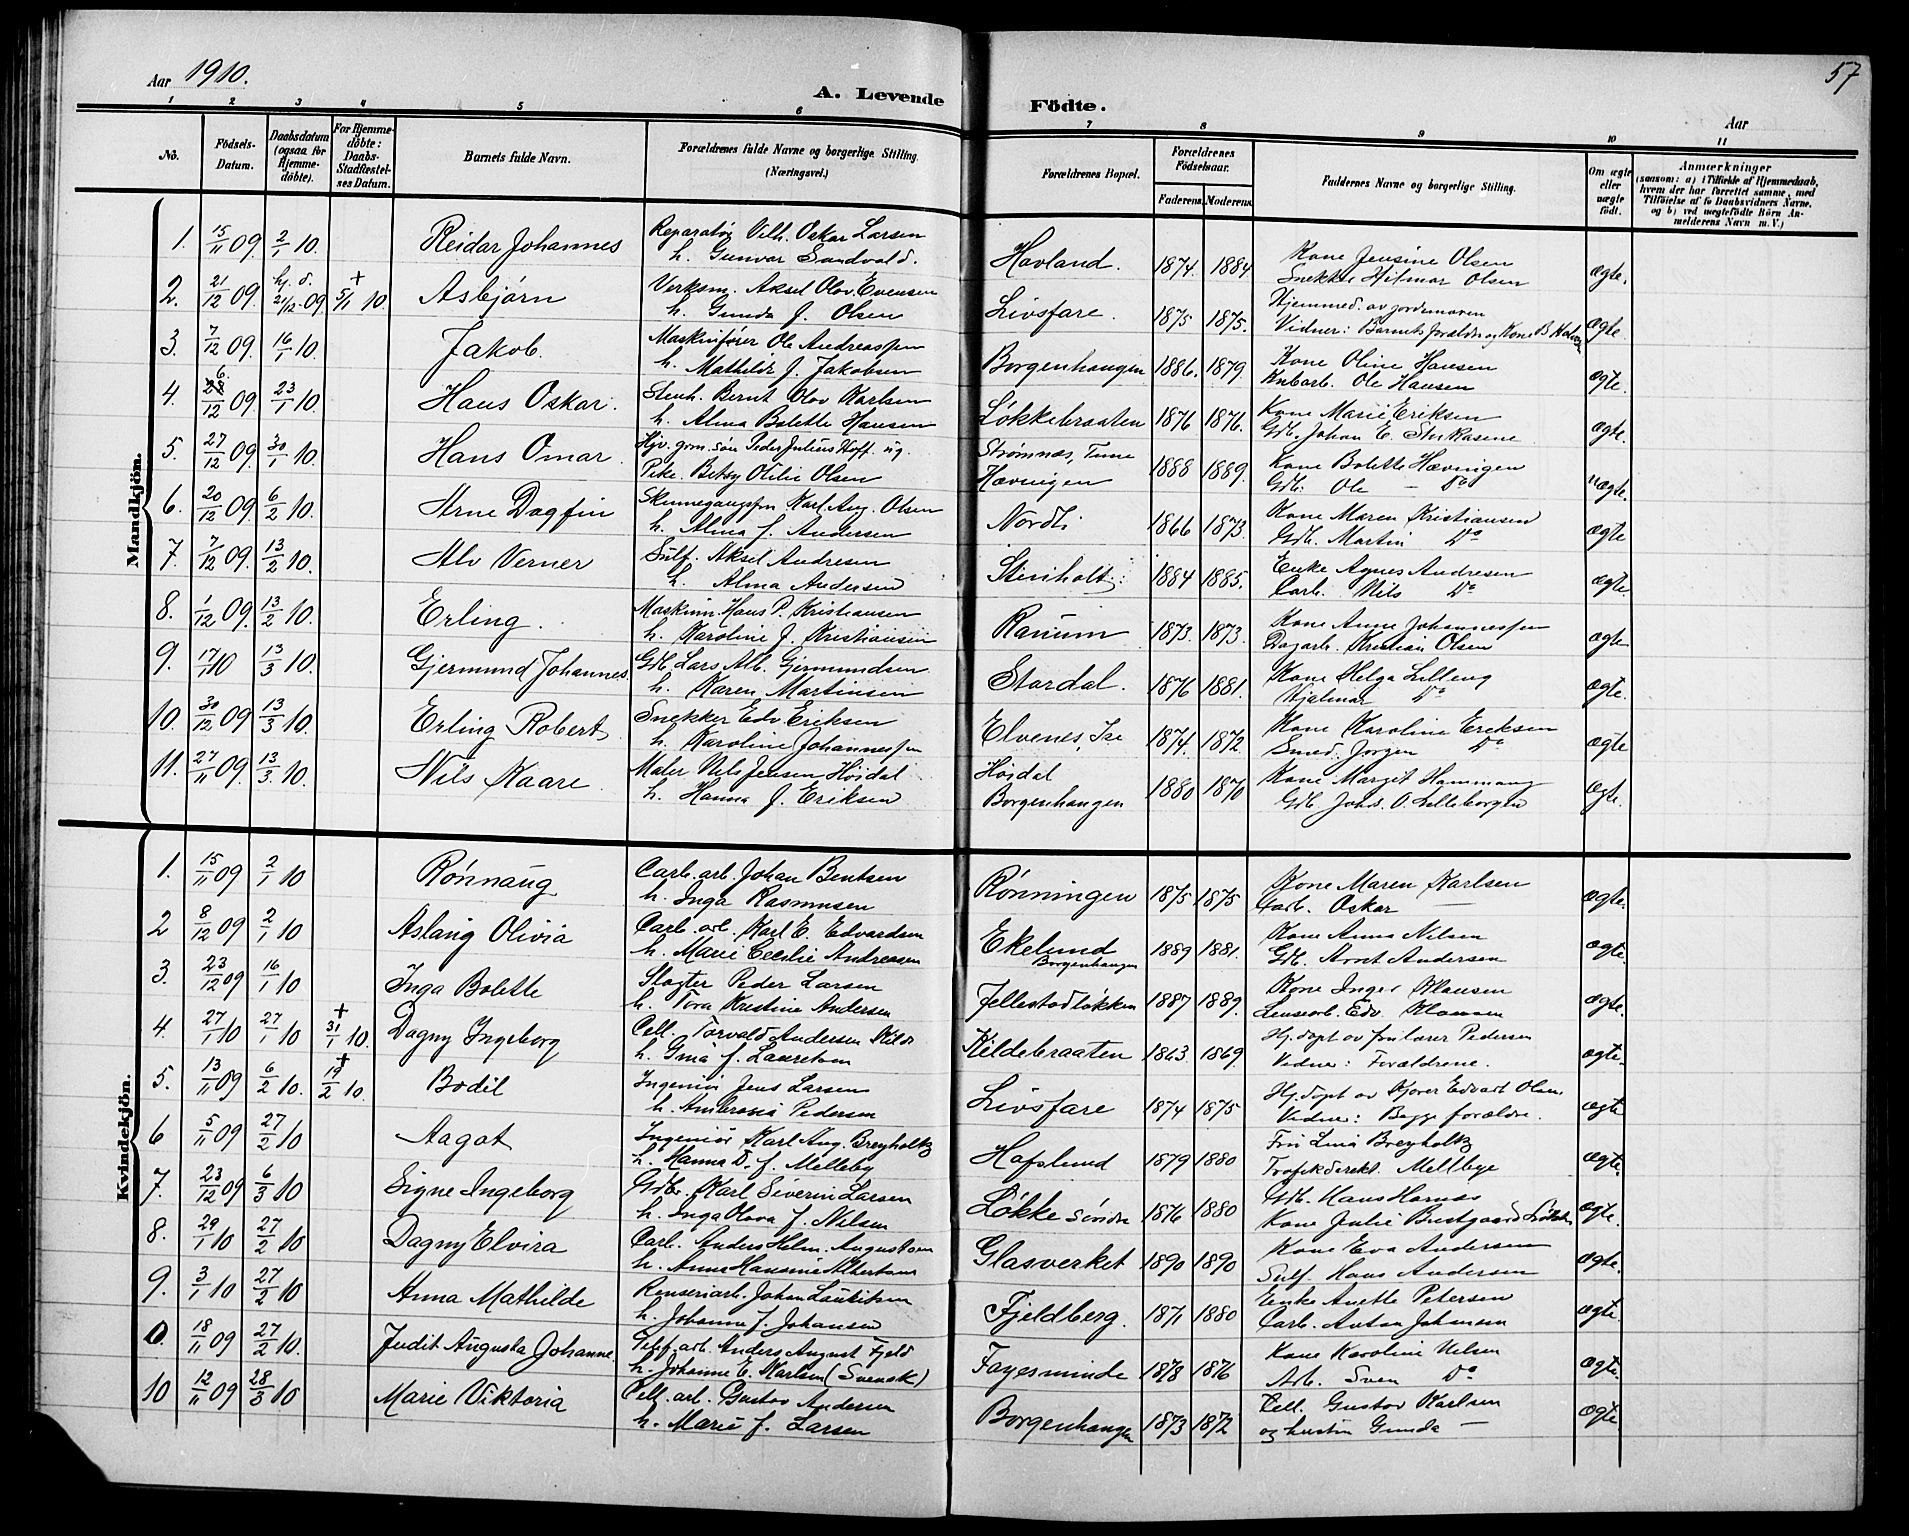 57
Aar 1910.
A. Levende Födte.
Aar
1 2 3 4 5 6 7 8 9 10 11
No.
Födsels-Datum.
Daabsdatum (ogsaa for Hjemme-döbte).
For Hjemme-döbte: Daabs-Stadfæstel-ses Datum.
Barnets fulde Navn.
Forældrenes fulde Navne og borgerlige Stilling. (Næringsvei.)
Forældrenes Bopæl.
Forældrenes Födselsaar.
Faderens Moderens
Faddernes Navne og borgerlige Stilling.
Om ægte eller uægte födt.
Anmærkninger
(saasom: a) i Tilfælde af Hjemmedaab, hvem der har forrettet samme, med Tilföielse af to Daabsvidners Navne, og b) ved uægtefödte Börn An-melderens Navn m. V.)
Mandkjön.
1. 15/11 09. 2/1 10. Reidar Johannes Reparatør Vilh. Oskar Larsen Havland. 1874. 1884 Kone Jensine Olsen ægte.
h. Gunvor Sandvold. Snekker Hilmar Olsen
2. 21/12 09. hj. d. 21/12-09 + 5/1 10. Asbjørn Verksm. Aksel Olov. Evensen Livsfare. 1875 1875. Hjemmed. av jordmoren ægte.
h. Gunda J. Olsen Vidner: Barnets forældre og Kone B.
3. 7/12 09. 16/1 10. Jakob. Maskinfører Ole Andreassen Borgenhaugen 1886. 1879. Kone Oline Hansen ægte.
h. Mathilde J. Jakobsen Ole Hansen
4. 6/12 09. 23/1 10. Hans Oskar. Stenh. Bernt Olov Karlsen Løkkebraaten 1876 1876. Kone Marie Eriksen ægte.
h. Alma Bolette Hansen Gdb. Johan E.
5. 27/12 09. 30/1 10. Hans Omar. søn Peder Julius Hoff. ug. Strømnæs, Tune 1888 1889. Kone Bolette Hævningen uægte.
Pike. Betsy Otilie Olsen Hævningen Gdb. Ole — Do
6. 20/12 09. 6/2 10. Arne Dagfin Karl Aug. Olsen Nordli 1866 1873. Kone Maren Kristiansen ægte
h. Alma J. Andersen Gdb. Martin Do
7. 7/12 09. 13/2 10. Alv Verner Sulf. Aksel Andresen Stenholt. 1884 1885. Enke Agnes Andresen ægte.
h. Alma Andersen Carb. Nils Do
8. 1/12 09. 13/2 10. Erling. Maskinm. Hans P. Kristiansen 1873. 1873. Kone Anne Johannessen ægte
h. Karoline J. Kristiansen Dagarb. Kristian Olsen
9. 17/1 10 13/3 10. Gjermund Johannes. Gdb. Lars Alb. Gjermundsen Stordal. 1876 1881. Kone Helga Lilleng ægte.
h. Karen Martinsen Hjalmar Do
10. 30/12 09 13/3 10. Erling Robert Snekker Edv. Eriksen Elvenes, Ise 1874. 1872 Kone Karoline Ereksen ægte
h. Karoline Johannessen Smed. Jørgen Do
11. 27/11 09. 13/3 10. Nils Kaare Maler Nils Jensen Høidal Høidal 1880 1870 Kone Margit ægte.
h. Hanna J. Eriksen Borgenhaugen Gdb. Johs. O. Lilleborgen
Kvindekjön.
1. 15/11 09 2/1 10 Rønnaug Carb. arb. Johan Bentsen Rønningen 1875 1875 Kone Maren Karlsen ægte.
h. Inga Rasmusen Carb. Oskar —
2 8/12 09 2/1 10 Aslaug Olivia Carb. arb. Karl E. Edvardsen Ekelund 1889 1881. Kone Anna Nilsen ægte.
h. Marie Cecilie Andreasen Borgenhaugen Gdb. Arnt Andersen
3. 23/12 09 16/1 10 Inga Bolette Slagter Peder Larsen Jellestadløkken 1887 1889. Kone Inger Klausen ægte.
h. Tora Kristine Andersen Edv. Klausen
4. 27/1 10 27/1 10 + 31/1 10. Dagny Ingeborg Cell. Torvald Andersen Kilde Kildebraaten 1863 1869. Hj.døpt av Pedersen ægte.
h. Gina J. Lauretsen Vidner: Forældrene.
5. 13/11 09 6/2 10. + 19/2 10. Bodil Ingeniør Jens Larsen Livsfare 1874 1875 Hj.døpt av Edvart Olsen ægte
h. Ambrosia Pedersen Vidner: Begge forældre.
6 5/11 09 27/2 10 Aagot Ingeniør Karl Aug. Breyholtz Hafslund 1879 1880 Fru Lina Breyholtz ægte.
h. Hanna D. J. Melleby Trafikdirekt. Mellbye
7. 23/12 09 6/3 10 Signe Ingeborg Gdbr. Karl Severin Larsen Løkke søndre 1876 1880 Gdb. Hans Hornæs ægte.
h. Inga Olava J. Nilsen Kone Julie
8. 29/1 10 27/2 10 Dagny Elvira Carb. Anders Helm. Augustsen Glasverket 1890 1890 Kone Eva Andersen ægte.
h. Anna Hansine Albertsen Sulf. Hans Andersen
9. 3/1 10 27/2 10 Anna Mathilde Renseriarb. Johan Lauritsen Fjeldberg. 1871 1880 Enke Anette Petersen ægte.
h. Johanne J. Johansen Carb. Anton Johnsen
0. 18/11 09 27/2 10. Judit Augusta Johanne. arb. Anders August Fjeld Fagesminde 1878 1876 Kone Karoline Nilsen ægte.
h. Johanne E. Karlsen (Svensk) Arb. Sven Do
10 12/11 09 28/3 10 Marie Viktoria Cell. arb. Gustav Andersen Borgenhaugen 1873 1872 Cell. Gustov Karlsen ægte.
h. Marie J. Larsen og hustru Gunda —